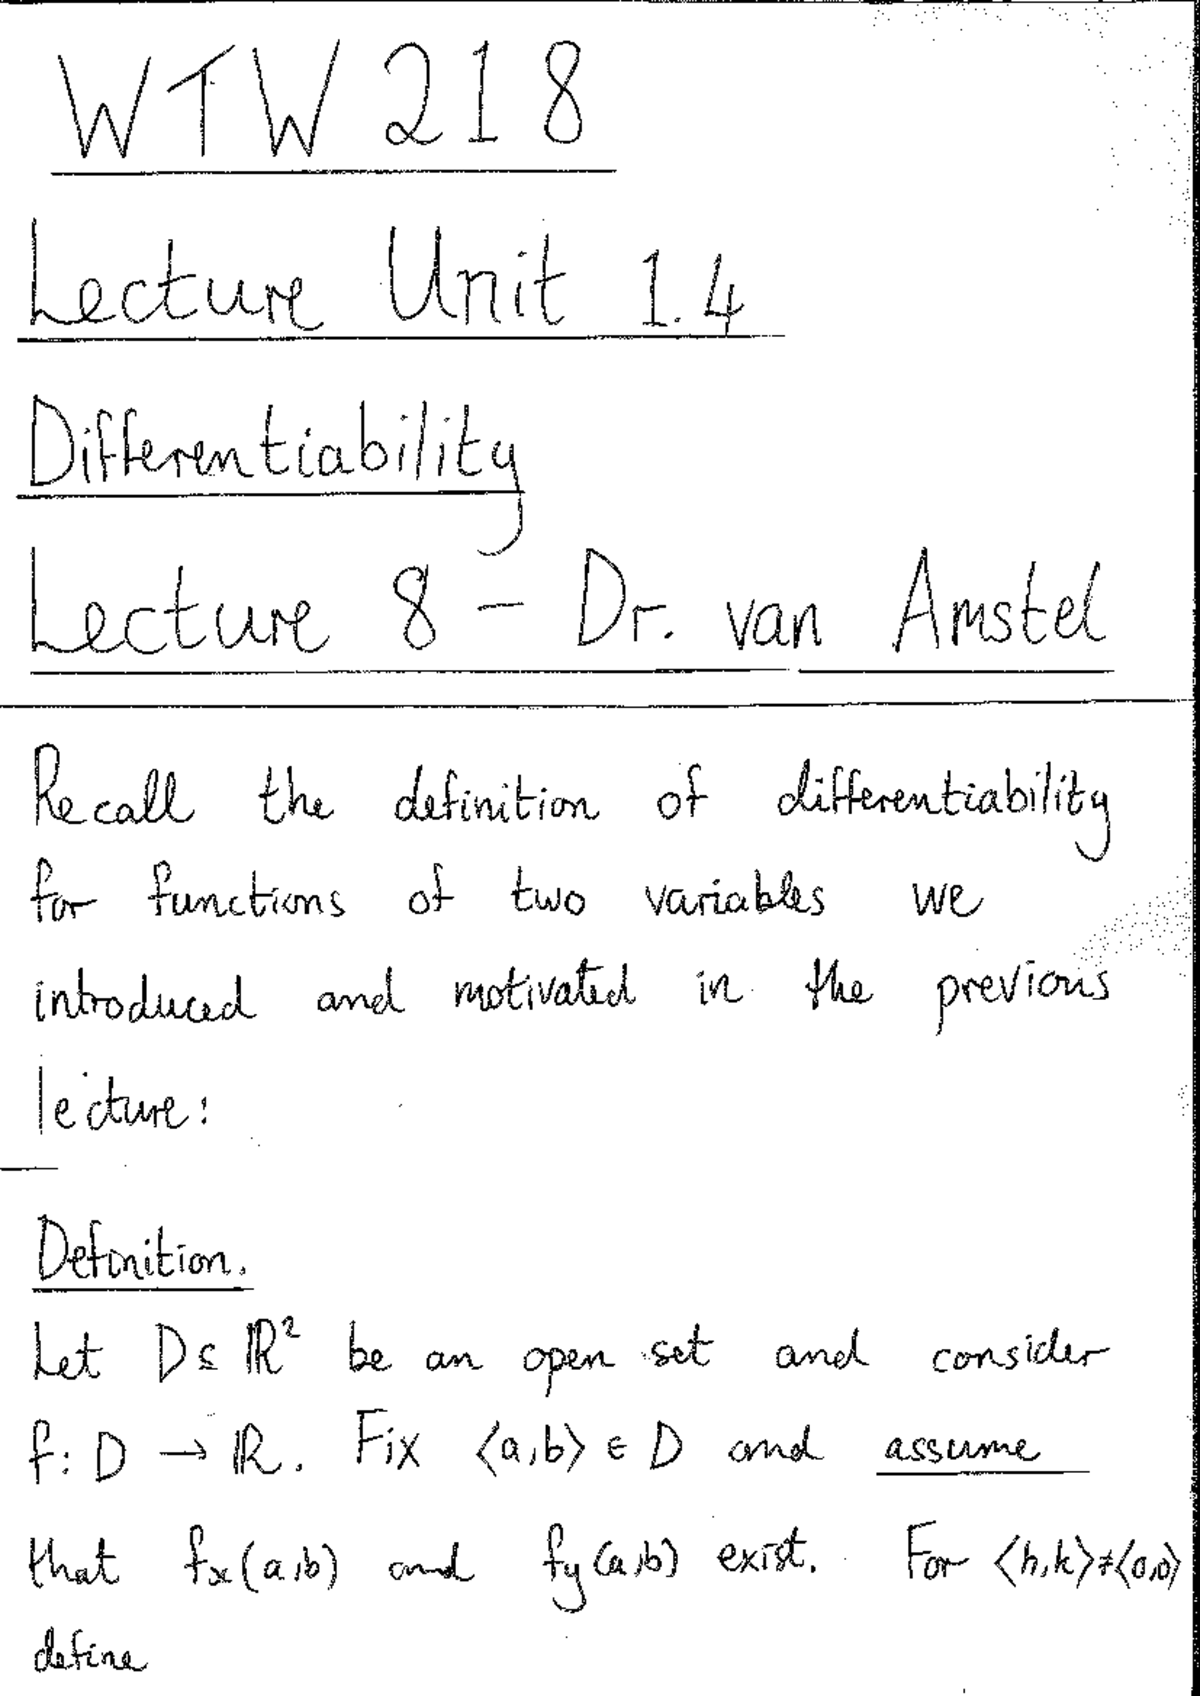 WTW 218
Lecture Unit 1.4
Differentiability
Lecture 8 – Dr. van Amstel
Recall the definition of differentiability
for functions of two variables we
introduced and motivated in the previous
lecture:
Definition.
Let D ⊆ ℝ² be an open set and consider
f: D → ℝ. Fix ⟨a,b⟩ ∈ D and assume
that fx(a,b) and fy(a,b) exist. For ⟨h,k⟩≠⟨0,0⟩
define